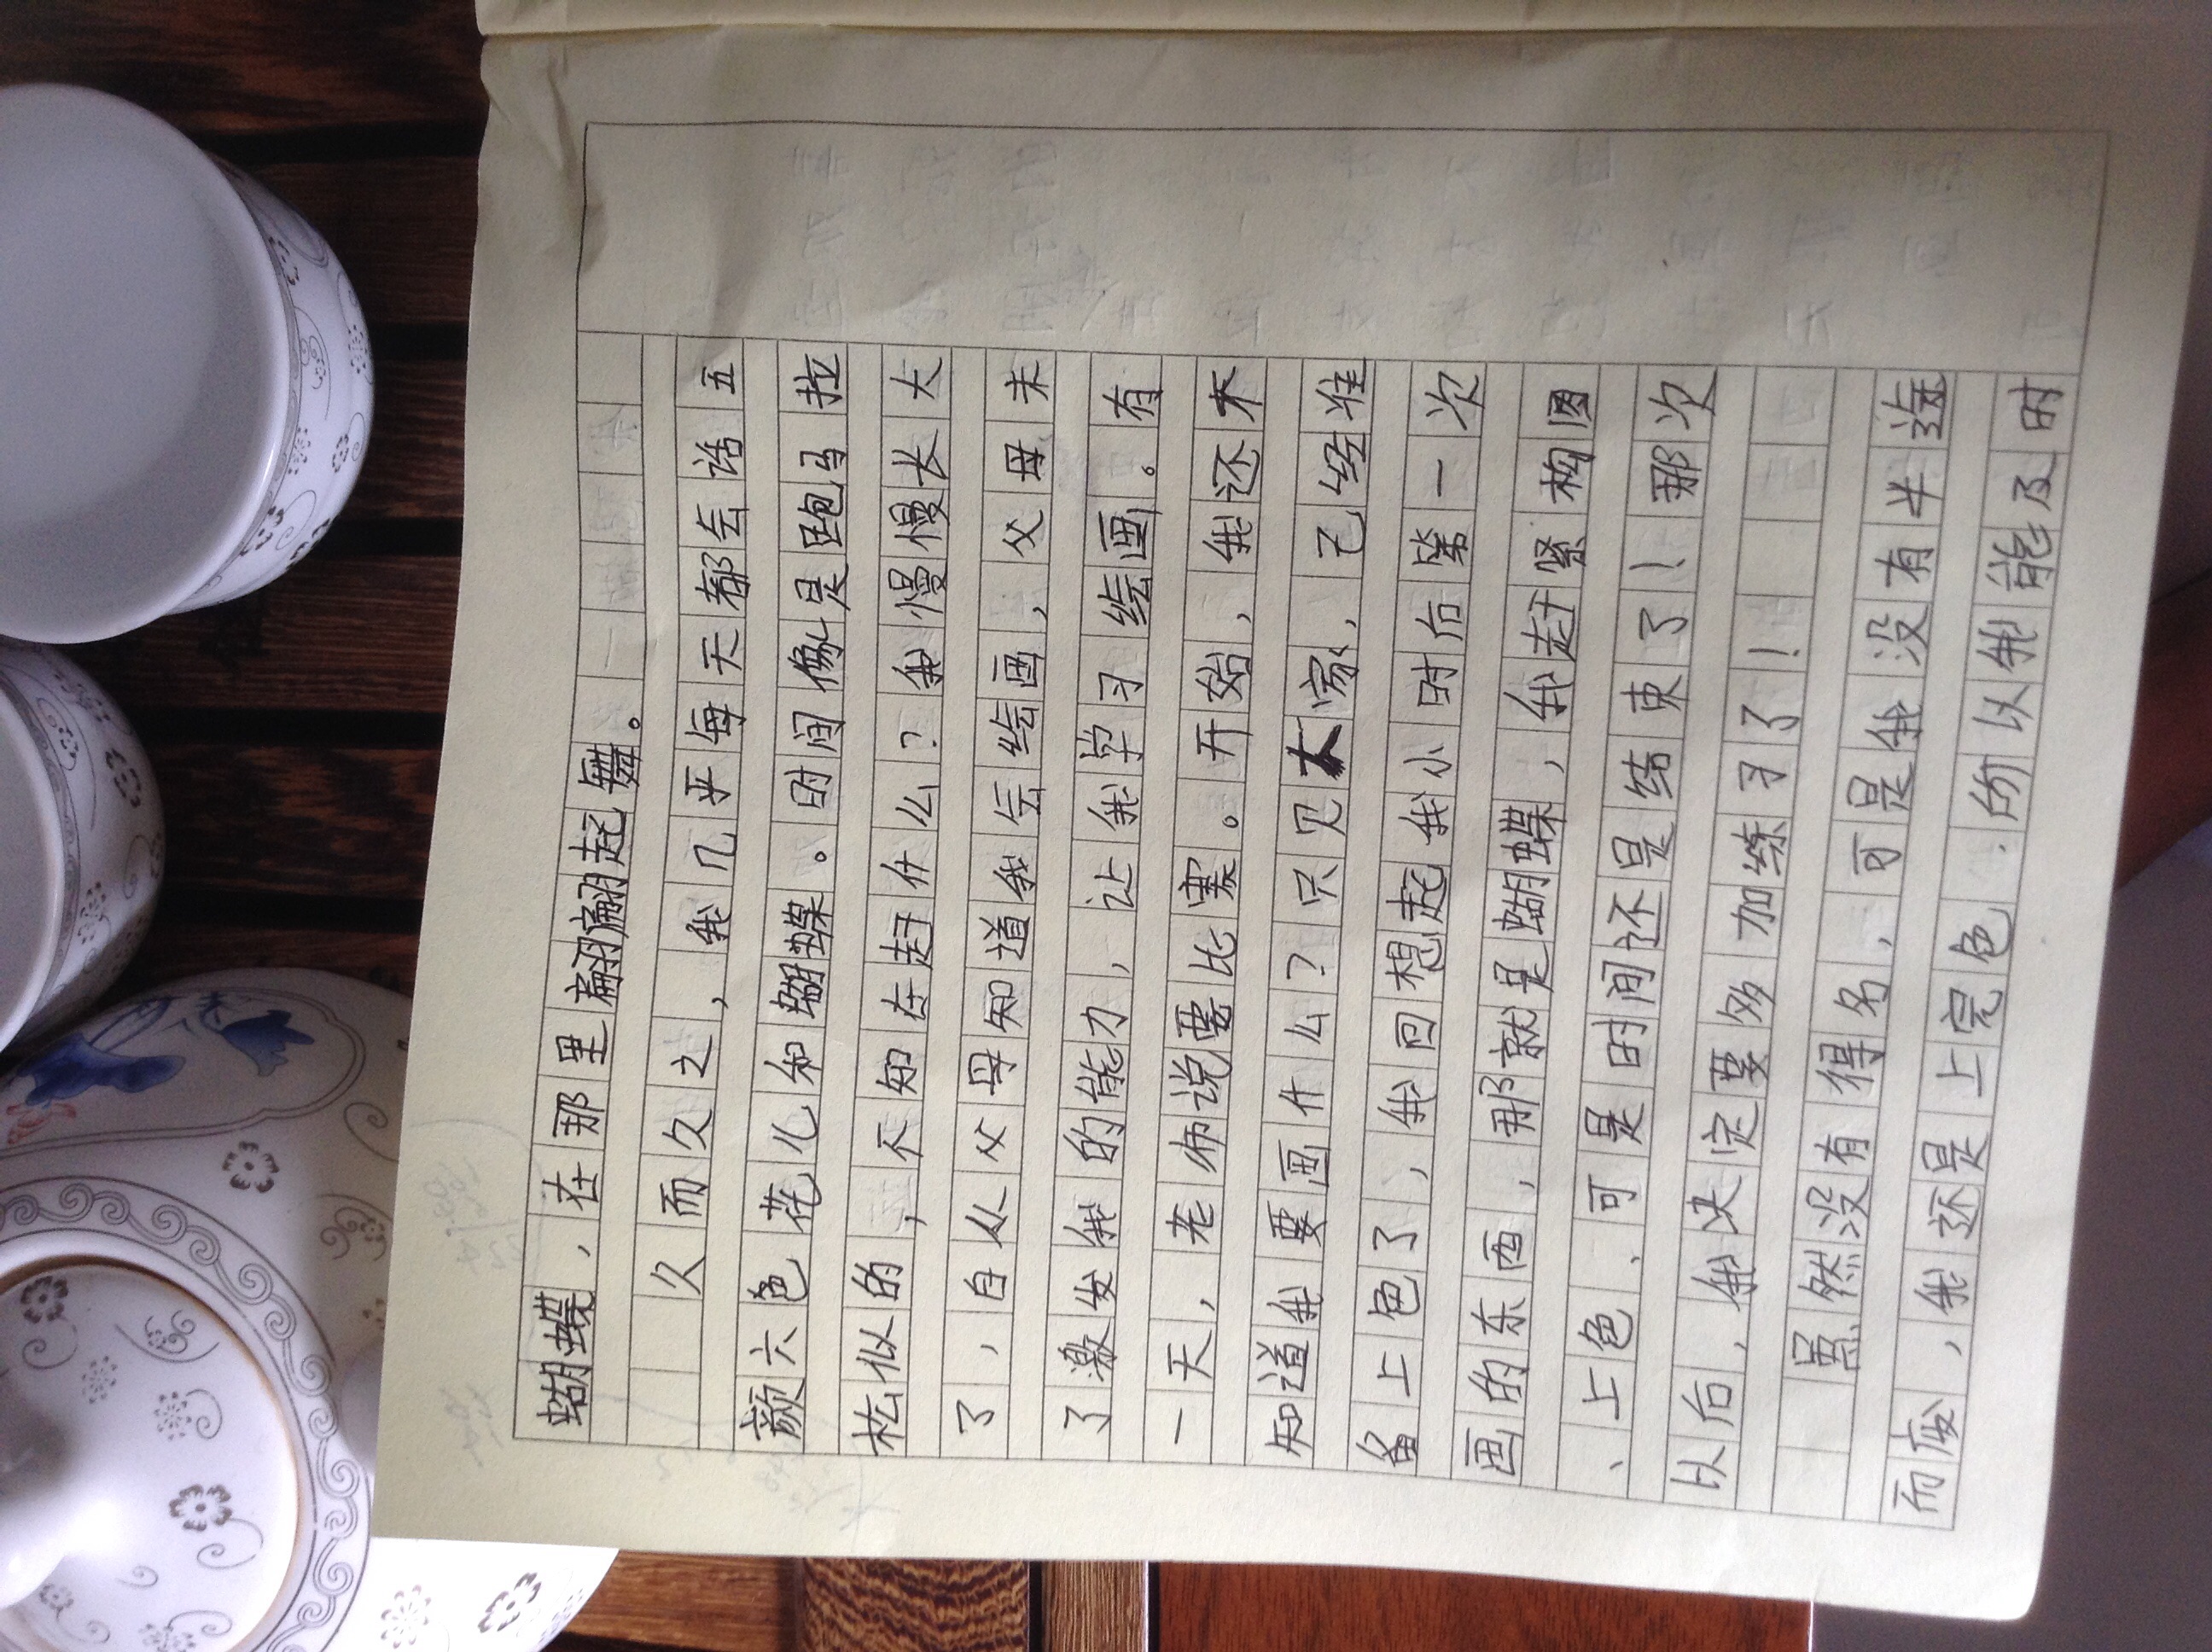 蝴蝶，在那里翩翩起舞。
久而久之，我几乎每天都会话五
颜六色花儿和蝴蝶。时间像是跑马拉
松似的，不知在赶什么？我慢慢长大
了，自从父母知道我会绘画，父母未
了激发我的能力，让我学习绘画。有
一天，老师说要比赛。开始，我还不
知道我要画什么？只见大家，已经准
备上色了，我回想起我小时后第一次
画的东西，那就是蝴蝶，我赶紧构图
、上色、可是时间还是结束了！那次
以后，我决定要多加练习了！
虽然没有得名，可是我没有半途
而废，我还是上完色．所以我能及时